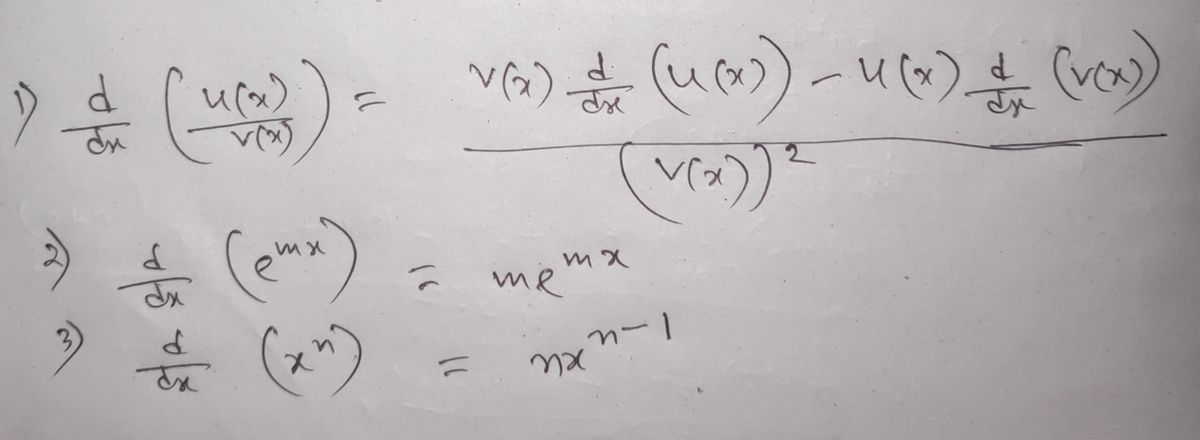 1) d/dx (u(x)/v(x)) = (v(x) d/dx (u(x)) - u(x) d/dx (v(x)))/(v(x))²
2) d/dx (e^{mx}) = me^{mx}
3) d/dx (x^n) = nx^{n-1}